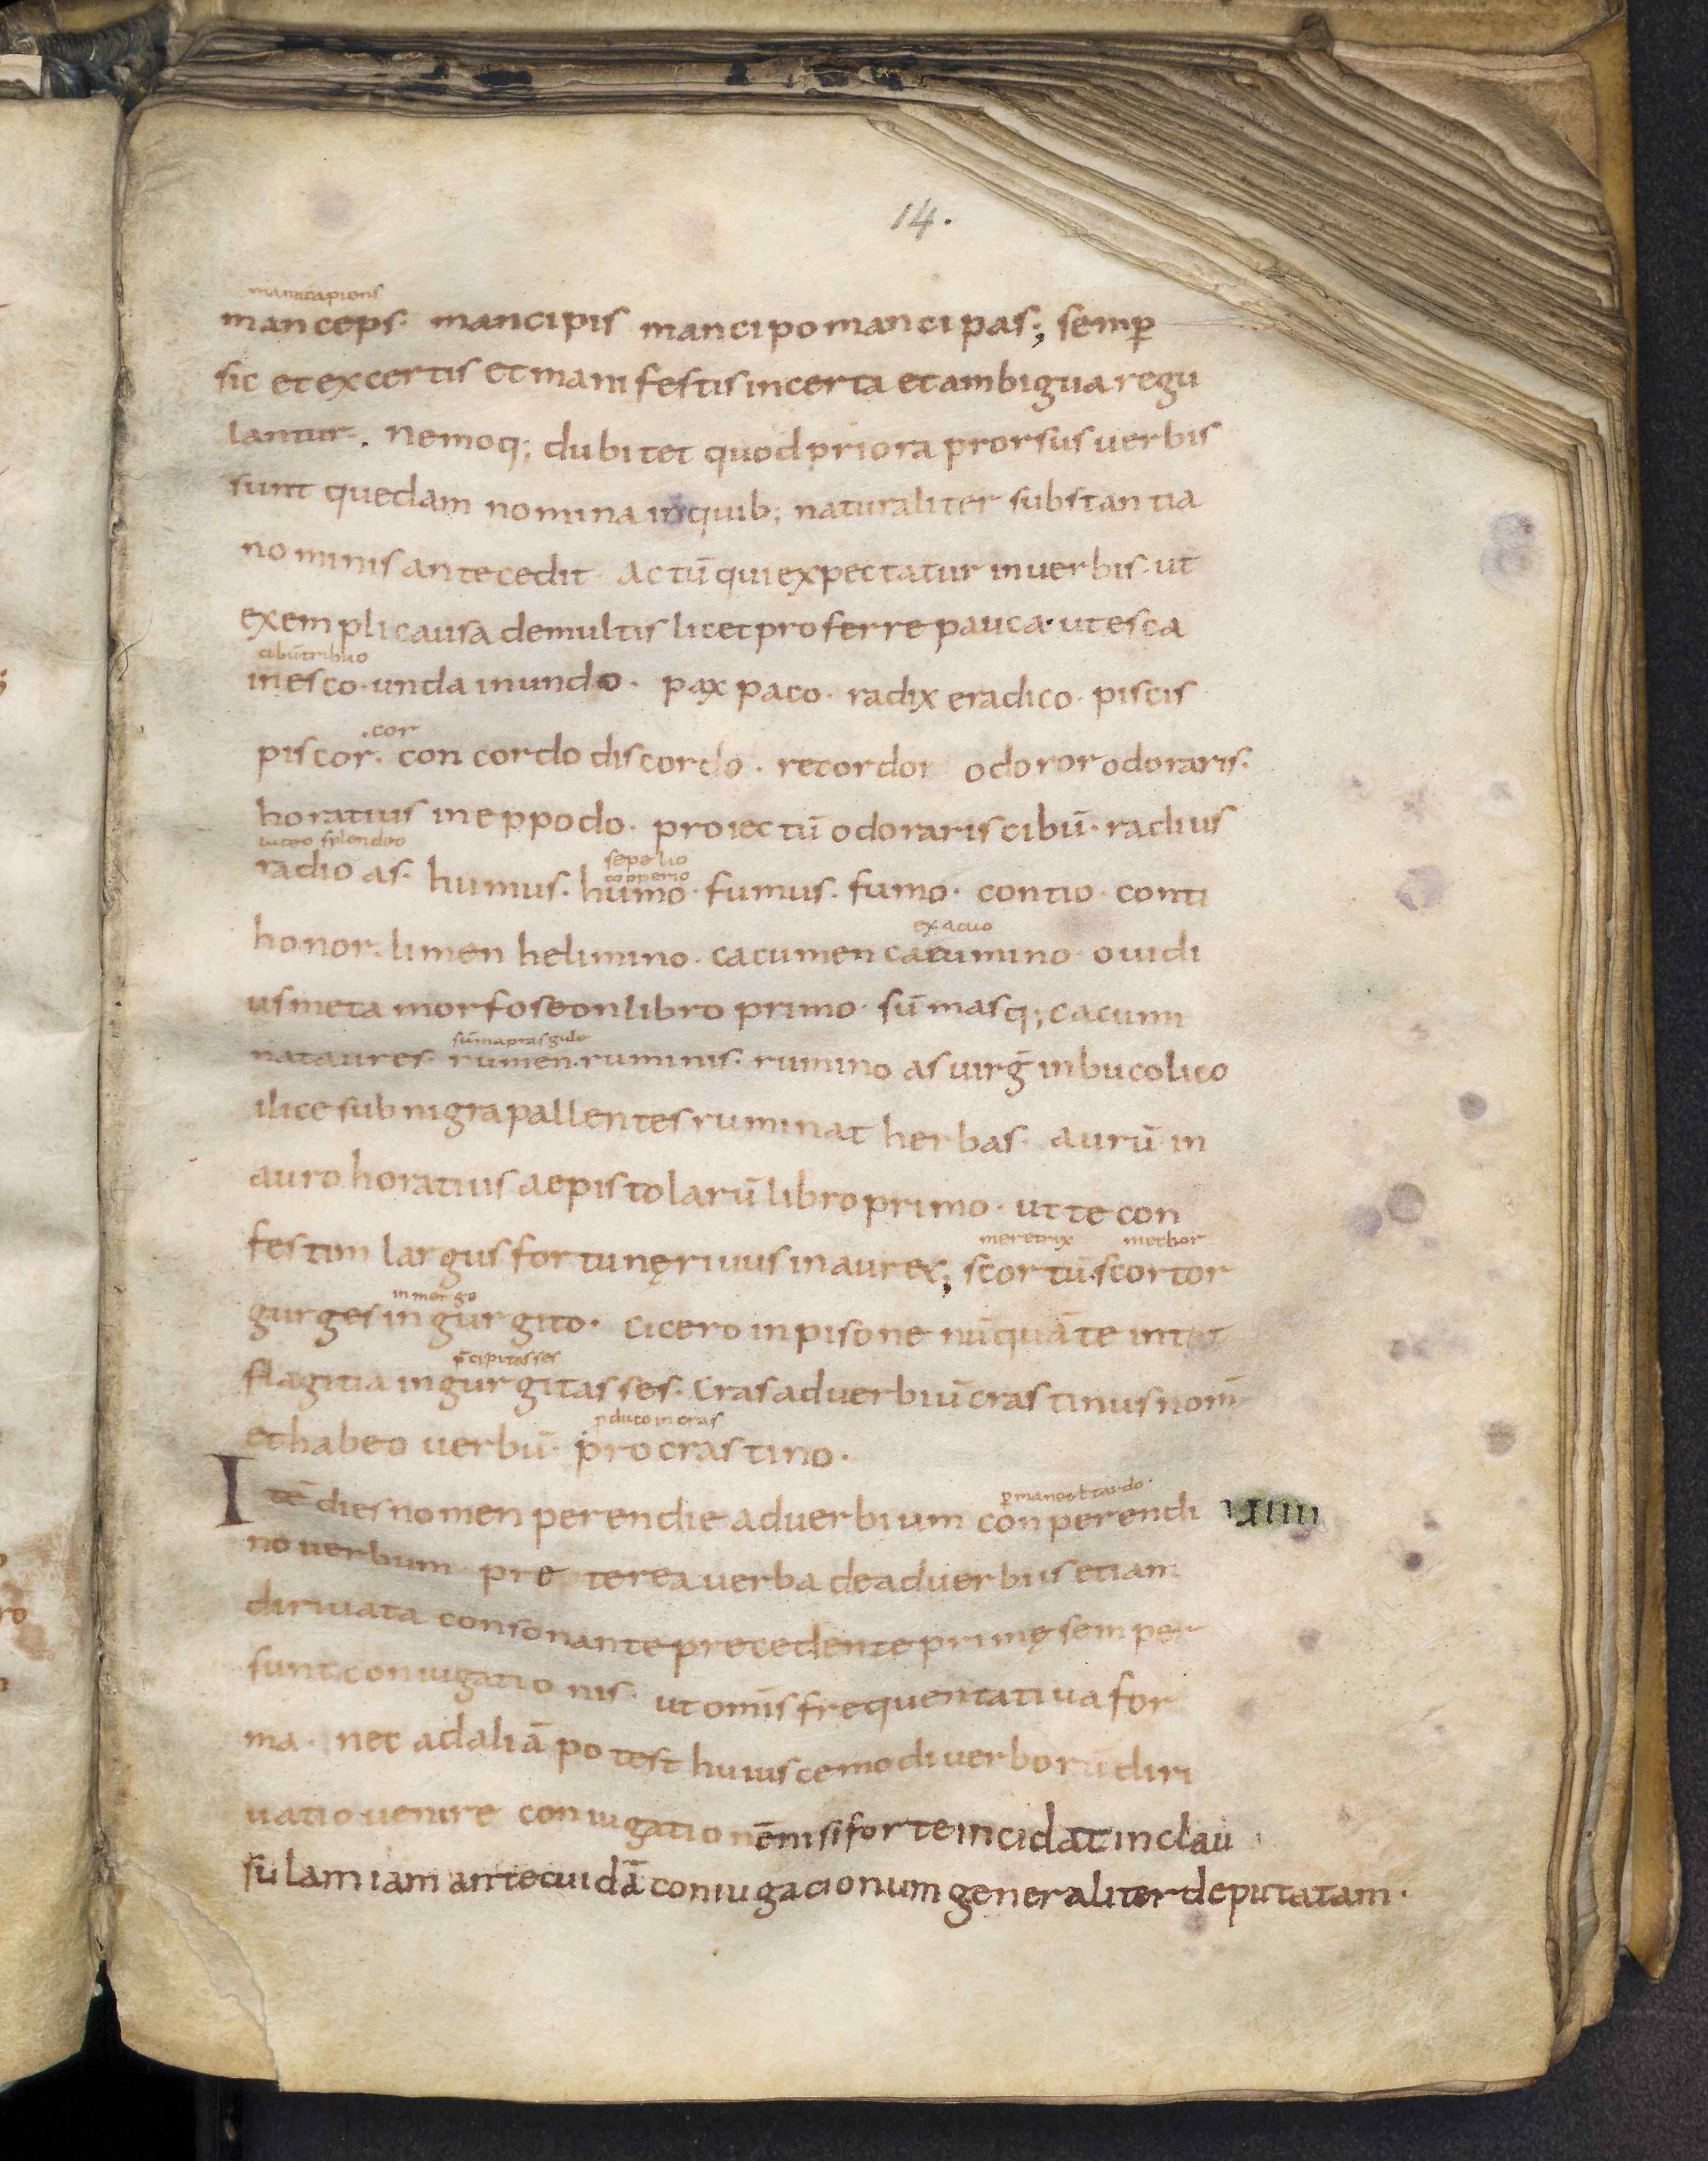 14.
manucapiens
manceps· mancipis mancipo mancipas; semp̲
sic et ex certis et manifestis incerta et ambigua regu
lantur. Nemoq; dubitet quod priora prorsus uerbis
sunt quedam nomina in quib; naturaliter substantia
nominis antecedit· actū qui expectatur in uerbis· ut
exempli causa de multis licet proferre pauca· ut esca
cibū tribuo
inesco· unda inundo· pax paco· radix eradico· piscis
.cor
piscor· concordo discordo· recordor odoror odoraris·
horatius in eppodo· proiectū odoraris cibū· radius
luceo splendeo
sepelio
cooperio
radio as· humus· humo· fumus· fumo· contio· conti
exacuo
honor· limen helimino· cacumen cacumino· ouidi
us metamorfoseon libro primo· sūmasq; cacumi
nat aures· rumen· ruminis· rumino as uirḡ in bucolico
ilice sub nigra pallentes ruminat herbas· aurū in
auro horatius aepistolarū libro primo· ut te con
meretrix
mechor
festim largus fortunę riuus inauret; scortū· scortor
inmergo
gurges ingurgito· cicero in pisone nūquā te in tot
p̄cipitasses
flagitia ingurgitasses· Cras aduerbiū crastinus nom̄
p̲duco in cras
et habeo uerbū· procrastino·
p̲maneo t̄ tardo·
Itē dies nomen perendie aduerbium conperendi VIIII
no uerbum· preterea uerba de aduerbiis etiam
diriuata consonante precedente primę semper
sunt coniugationis· ut om̄is frequentatiua for
ma· nec ad aliā potest huiuscemodi uerborū diri
uatio uenire coniugationē nisi forte incidat in clau
sulam iam ante cuidā coniugacionum generaliter deputatam·